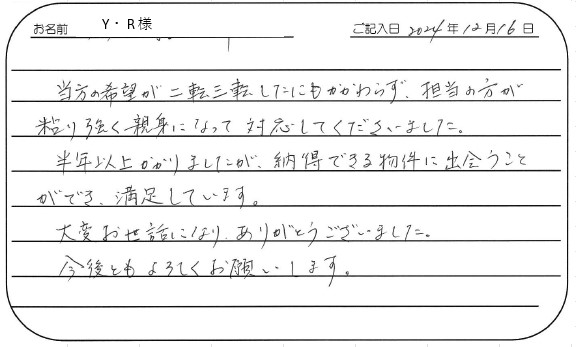 お名前 Y・R様 ご記入日 2024年12月16日
当方の希望が二転三転したにもかかわらず、担当の方が
粘り強く親身になって対応してくださいました。
半年以上かかりましたが、納得できる物件に出会うこと
ができ、満足しています。
大変お世話になり、ありがとうございました。
今後ともよろしくお願いします。